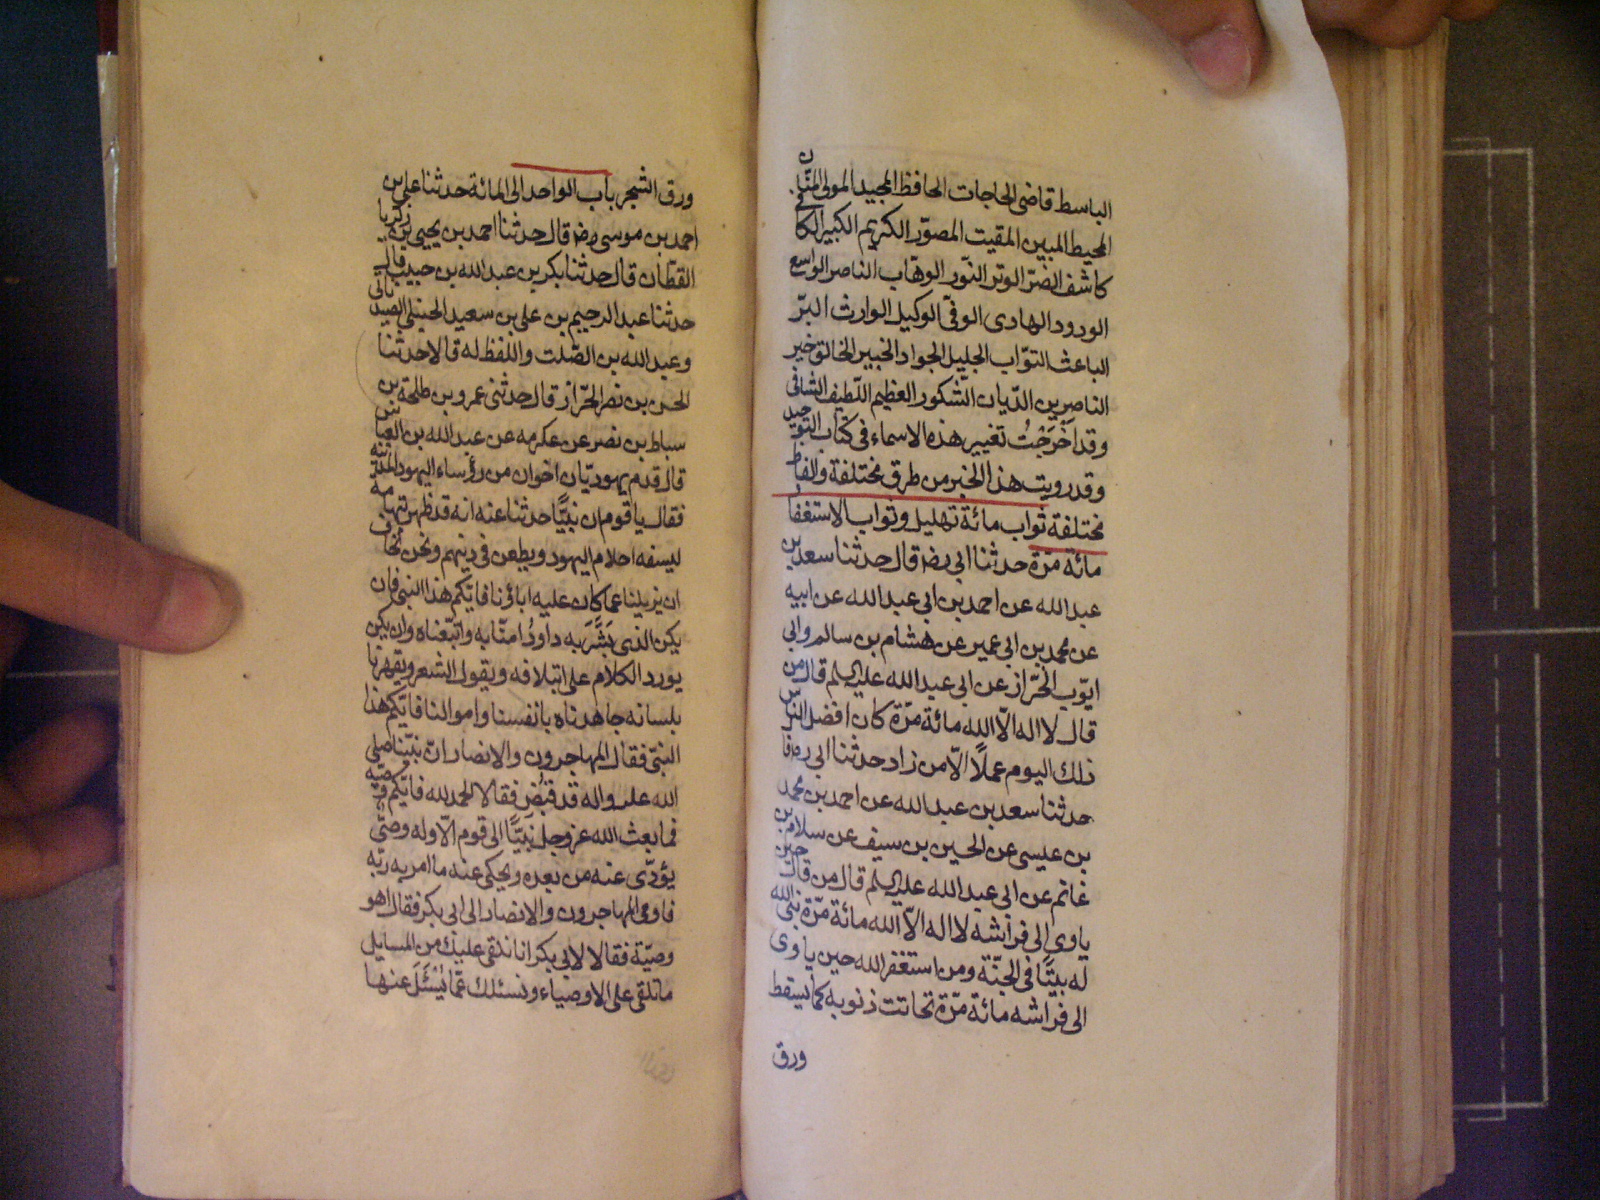 الباسط قاضى الحاجات الحافظ المجيد المولى المنّان
المحيط المبين المقيت المصوّر الكريم الكبير الكافى
كاشف الضرّ الوتر النّور الوهّاب الناصر الواسع
الودود الهادى الوفىّ الوكيل الوارث البرّ
الباعث التوّاب الجليل الجواد الخبير الخالق خير
الناصرين الدّيان الشّكور العظيم اللّطيف الشافى
وقد اَخرَجْتُ تغيير هذه الاسماء فى كتاب التوحيد
وقد رويت هذا الخبر من طرق مختلفة والفاظ
مختلفة ثواب مائة تهليل وثواب الاستغفار
مائة مرّة حدثنا ابى رضه قال حدثنا سعد بن
عبد الله عن احمد بن ابى عبد الله عن ابيه
عن محمد بن ابى عمير عن هشام بن سالم وابى
ايّوب الخرّاز عن ابى عبد الله عليه السلم قال من
قال لا اله الّا الله مائة مرّة كان افضل النّاس
ذلك اليوم عملاً الّا من زاد حدثنا ابى رضه قال
حدثنا سعد بن عبد الله عن احمد بن محمد
بن عليسى عن الحسين بن سيف عن سلام بن
غانم عن ابى عبد الله عليه السلم قال من قال حين
ياوى الى فراشه لا اله الّا الله مائة مرّة بنى الله
له بيتًا فى الجنّة ومن استغفر الله حين ياوى
الى فراشه مائة مرّة تحاتت ذنوبه كما يسقط
ورق
ورق الشجر باب الواحد الى المائة حدثنا على بن
احمد بن موسى رضه قال حدثنا احمد بن يحيى بن زكريا
القطّان قال حدثنا بكر بن عبد الله بن حبيب قال
حدثنا عبد الرحيم بن على بن سعيد الجبلى الصيدنانى
وعبد الله بن الصّلت واللفظ له قالا حدثنا
الحسن بن نصر الخرّاز قال حدثنى عمرو بن طلحة بن
سباط بن نصر عن عكرمه عن عبد الله بن العباس
قال قدم يهوديّان اخوان من رؤساء اليهود المدينه
فقال يا قوم ان نبيًّا حدثنا عنه انه قد ظهر بتهامة
ليسفه احلام اليهود ويطعن فى دينهم ونحن نخاف
ان يزيلنا عما كان عليه اباؤنا فايّكم هذا النبى فان
يكن الذى بَشَّرَ به داودُ امنّا به واتبّعناه وان يكن
يورد الكلام على ائتلافه ويقول الشعر ويقهرنا
بلسانه جاهدناه بانفسنا واموالنا فايّكم هذا
النبىّ فقال المهاجرون والانصار انّ نبيّنا صلى
الله عليه واله قد قبُض فقالا الحمد لله فايّكم وصيّه
فما بعث الله عز وجل نَبيًّا الى قوم الّا وله وصىّ
يؤدّى عنه من بعده ويحكى عنه ما امر به ربّه
فاومى المهاجرون والانصار الى ابى بكر فقال اهو
وصيّة فقالا لابى بكر انا نلقى عليك من المسايل
ما تلقى على الاوصياء ونسئلك عمّا يُسْئَلَ عنها